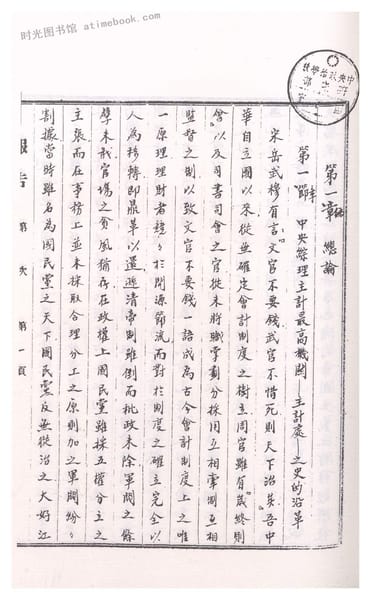 时光图书馆 atimebook.com
第一章 總論
第一節 中央綜理主計最高機關 主計處 之史的沿革
宋岳武穆有言文官不要錢武官不惜死則天下治矣吾中
華自立國以來從無確定會計制度之樹立周官雖有歲終則
會以及司書司會之官從未將職掌劃分採用互相牽制互相
監督之制以致文官不要錢一語成為古今會計制度上之唯
一原理理財者競競於開源節流而對於制度之確立完全以
人為移轉即鼎革以還遜清帝制雖倒而批政未除軍閥之餘
孽未戢官場之貧風猶存在政權上國民黨雖採五權分立之
主張而在事務上並未採取合理分工之原則加之軍閥紛紛
割據當時雖名為國民黨之天下國民黨反無從治之大好江
報告 第 次 第一頁